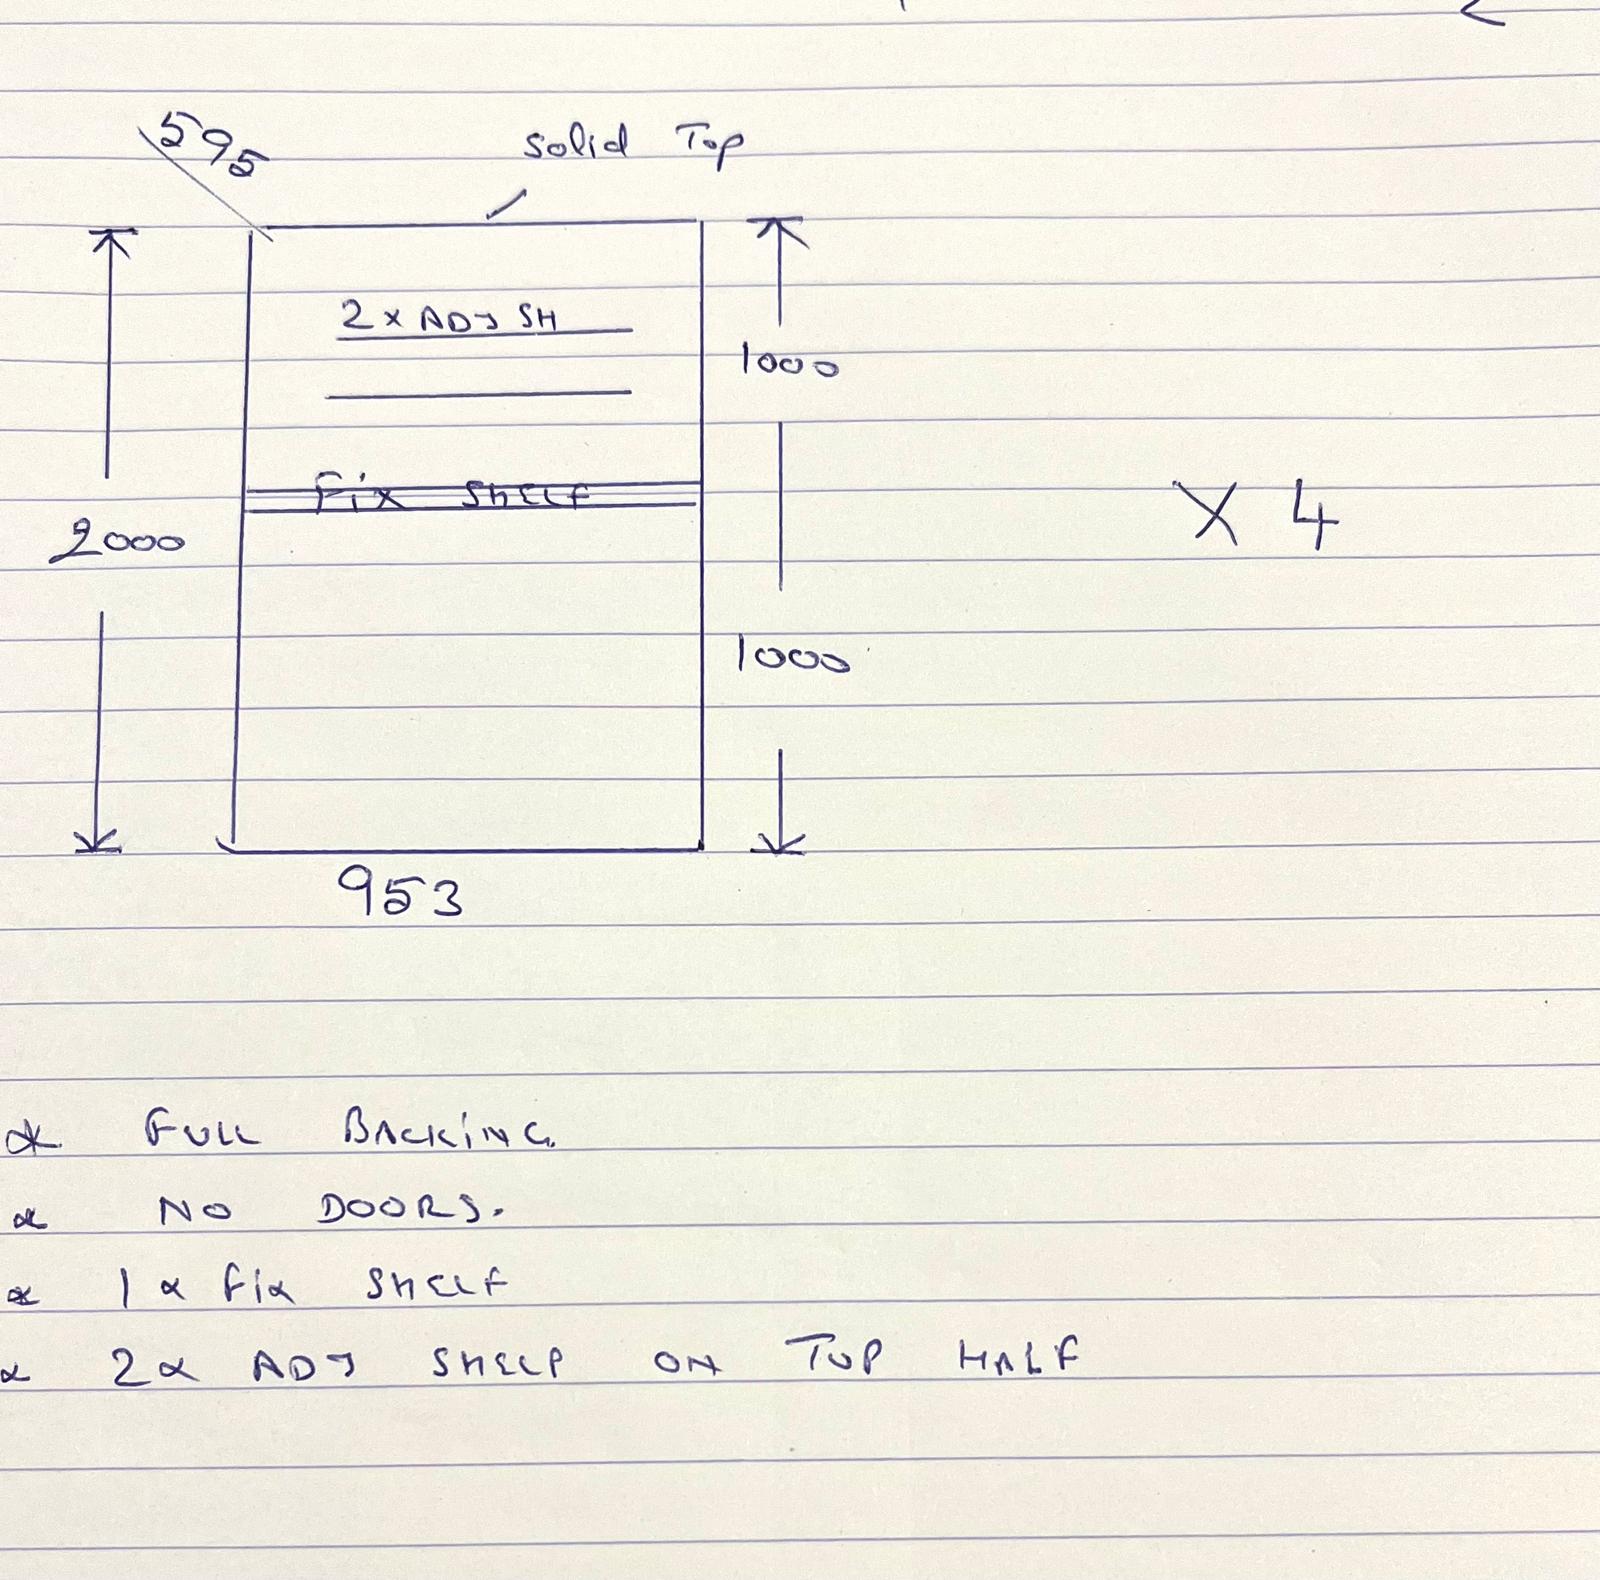 595
Solid Top
2 x ADJ SH
1000
Fix SHELF
2000
X 4
1000
953
* FULL BACKING.
* NO DOORS.
* 1 x Fix SHELF
* 2 x ADJ SHELF ON TOP HALF